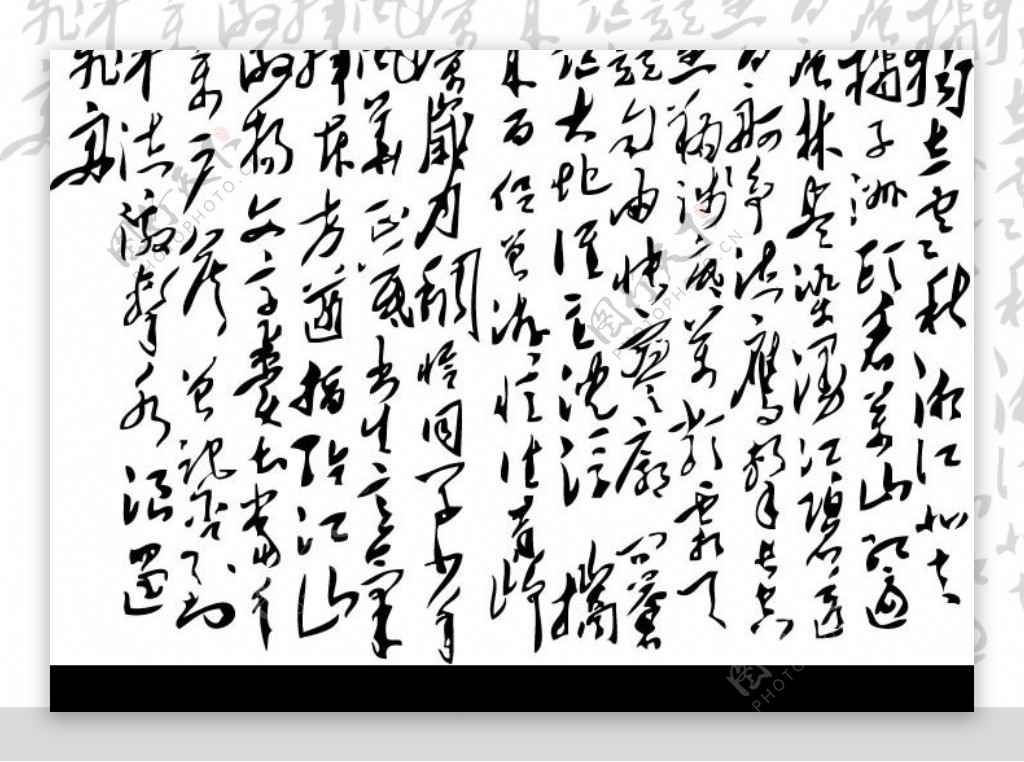 独立寒秋湘江北去
橘子洲头看万山红遍
层林尽染漫江碧透
百舸争流鹰击长空
鱼翔浅底万类霜天
竞自由怅寥廓问苍
茫大地谁主沉浮携
来百侣曾游忆往昔峥
嵘岁月稠恰同学少年
风华正茂书生意气
挥斥方遒指点江山
激扬文字粪土当年
万户侯曾记否到
中流激击水浪遏
飞舟